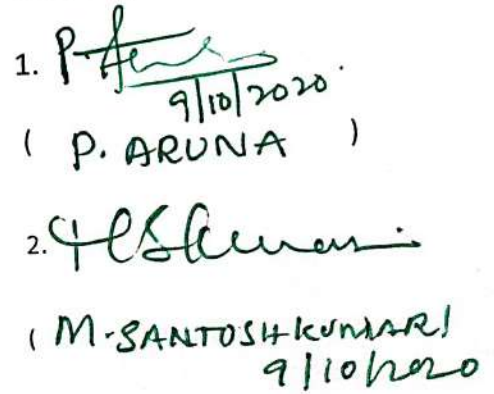 1. P. Aruna
9/10/2020.
( P. ARUNA )
2.
( M. SANTOSH KUMARI
9/10/2020